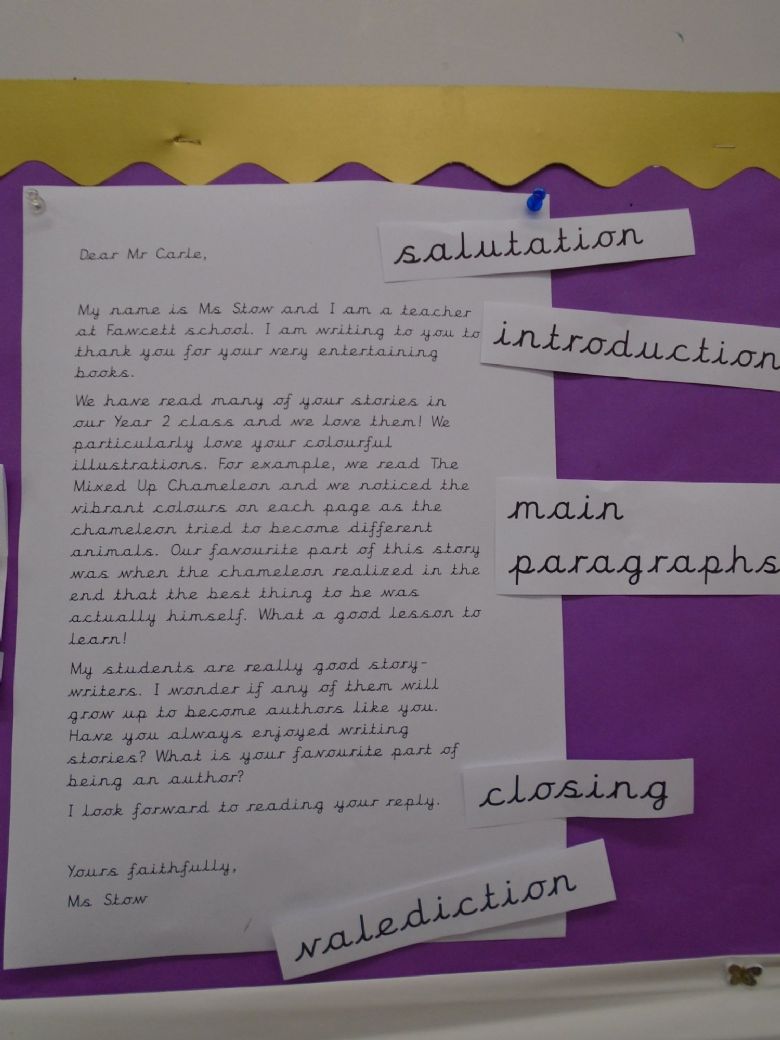 Dear Mr Carle,
salutation
My name is Ms Stow and I am a teacher
at Fawcett school. I am writing to you to
thank you for your very entertaining
books.
introduction
We have read many of your stories in
our Year 2 class and we love them! We
particularly love your colourful
illustrations. For example, we read The
Mixed Up Chameleon and we noticed the
vibrant colours on each page as the
chameleon tried to become different
animals. Our favourite part of this story
was when the chameleon realized in the
end that the best thing to be was
actually himself. What a good lesson to
learn!
main
paragraphs
My students are really good story-
writers. I wonder if any of them will
grow up to become authors like you.
Have you always enjoyed writing
stories? What is your favourite part of
being an author?
I look forward to reading your reply.
closing
Yours faithfully,
Ms Stow
valediction